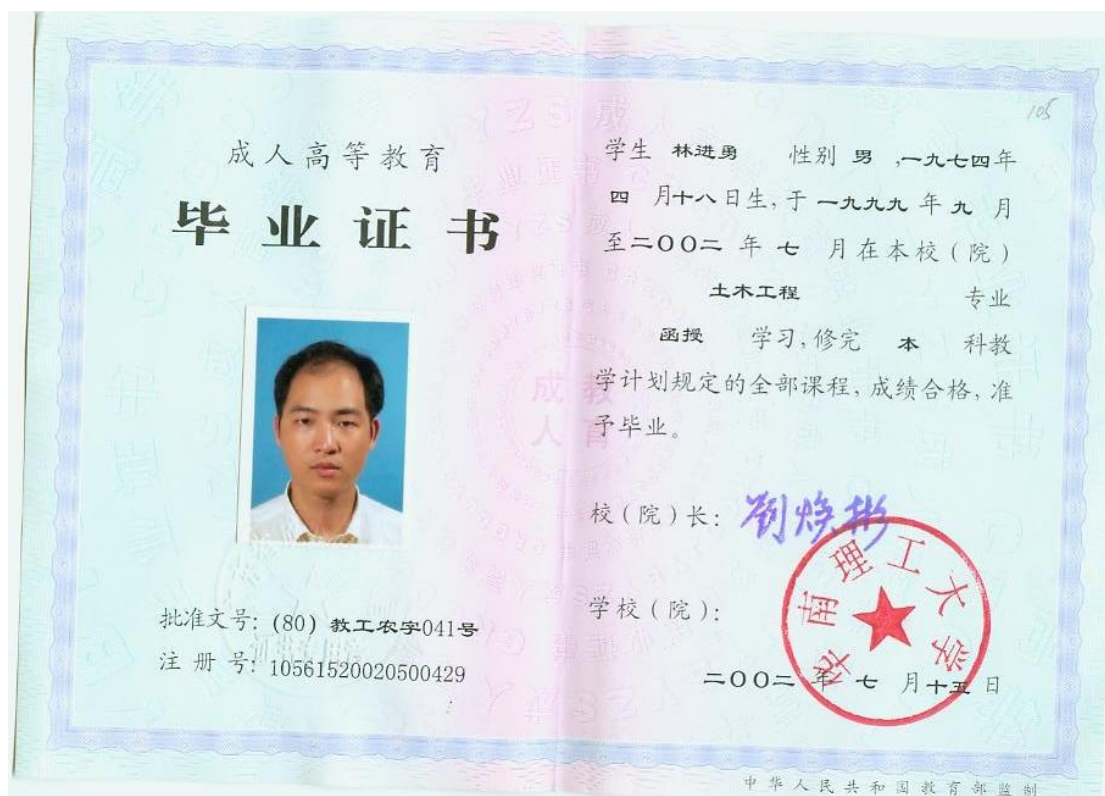 成人高等教育
毕业证书
批准文号: (80) 教工农字041号
注 册 号: 10561520020500429
105
学生 林进勇 性别 男 ,一九七四年
四 月十八日生,于 一九九九 年 九 月
至二〇〇二 年 七 月在本校(院)
土木工程 专业
函授 学习,修完 本 科教
学计划规定的全部课程,成绩合格,准
予毕业。
校(院)长: 劉焕彬
学校(院):
华南理工大学
二〇〇二 年 七 月十五 日
中华人民共和国教育部监制
成教
人育